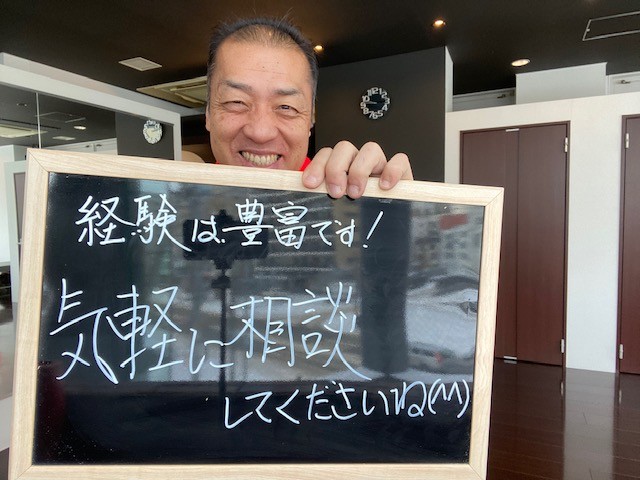 経験は豊富です!
気軽に相談
してくださいね(^^)